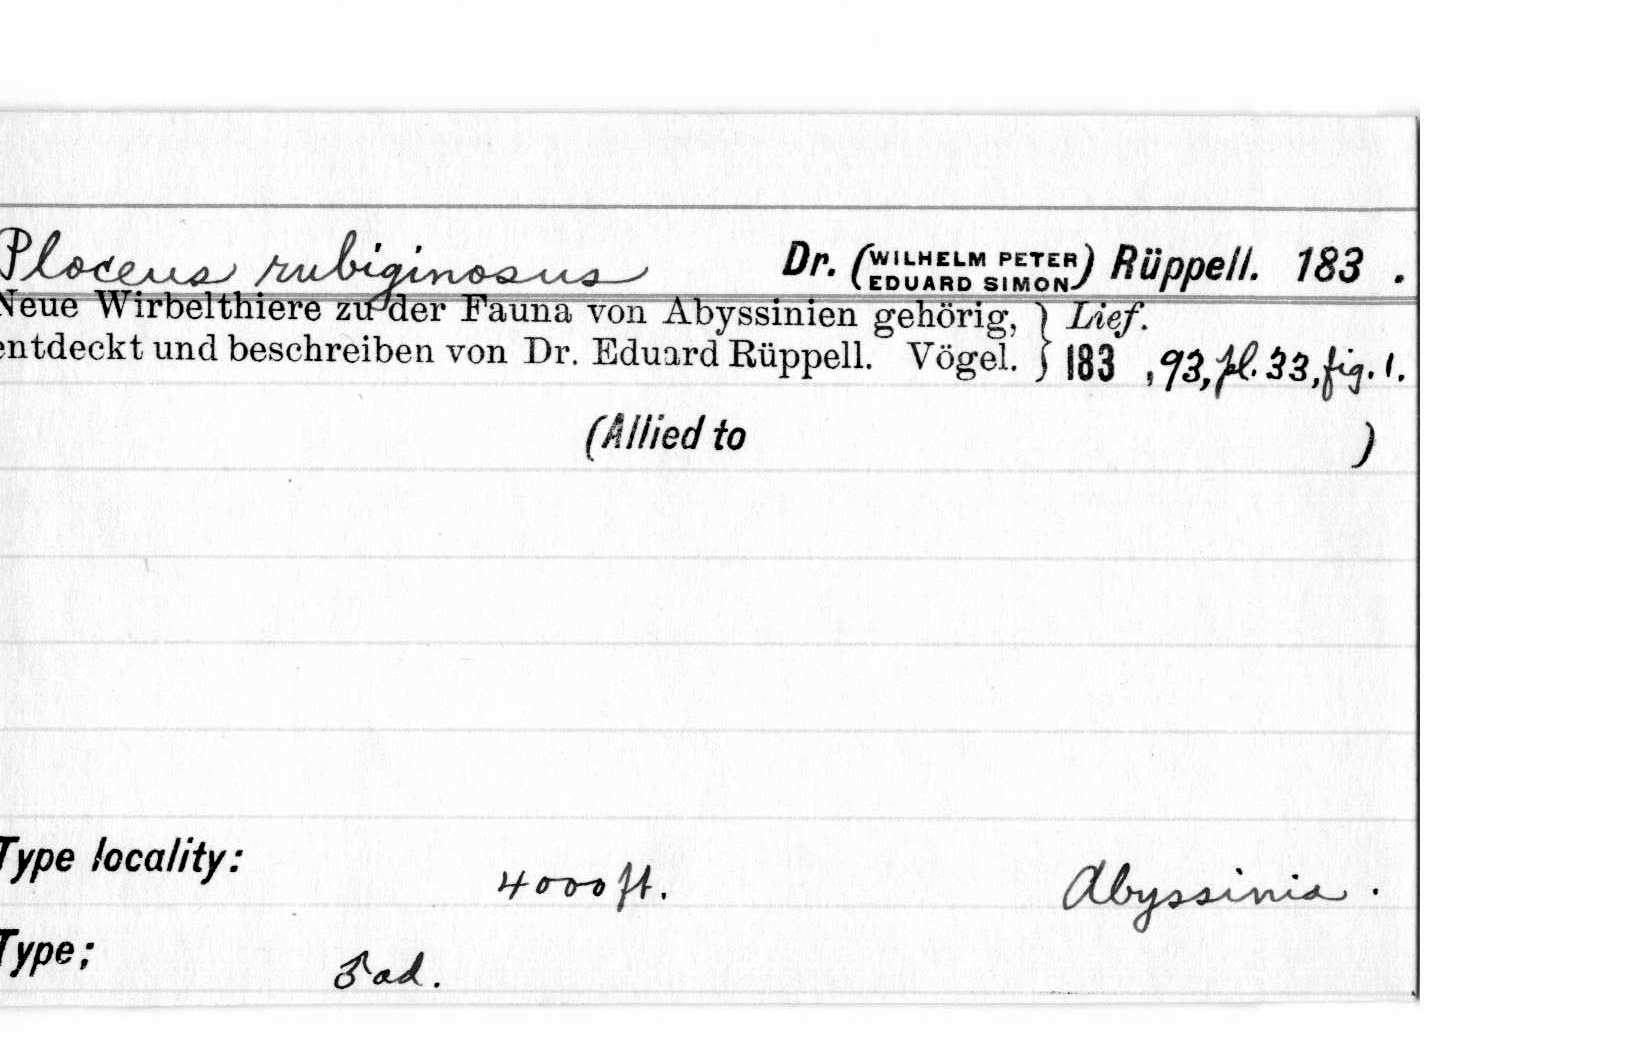 Ploceus rubiginosus Dr. (WILHELM PETER EDUARD SIMON) Rüppell. 183 .
Neue Wirbelthiere zu der Fauna von Abyssinien gehörig, } Lief.
entdeckt und beschreiben von Dr. Eduard Rüppell. Vögel. } 183 , 93, pl. 33, fig. 1.
(Allied to )
Type locality: 4000 ft. Abyssinia .
Type; ♂ ad.